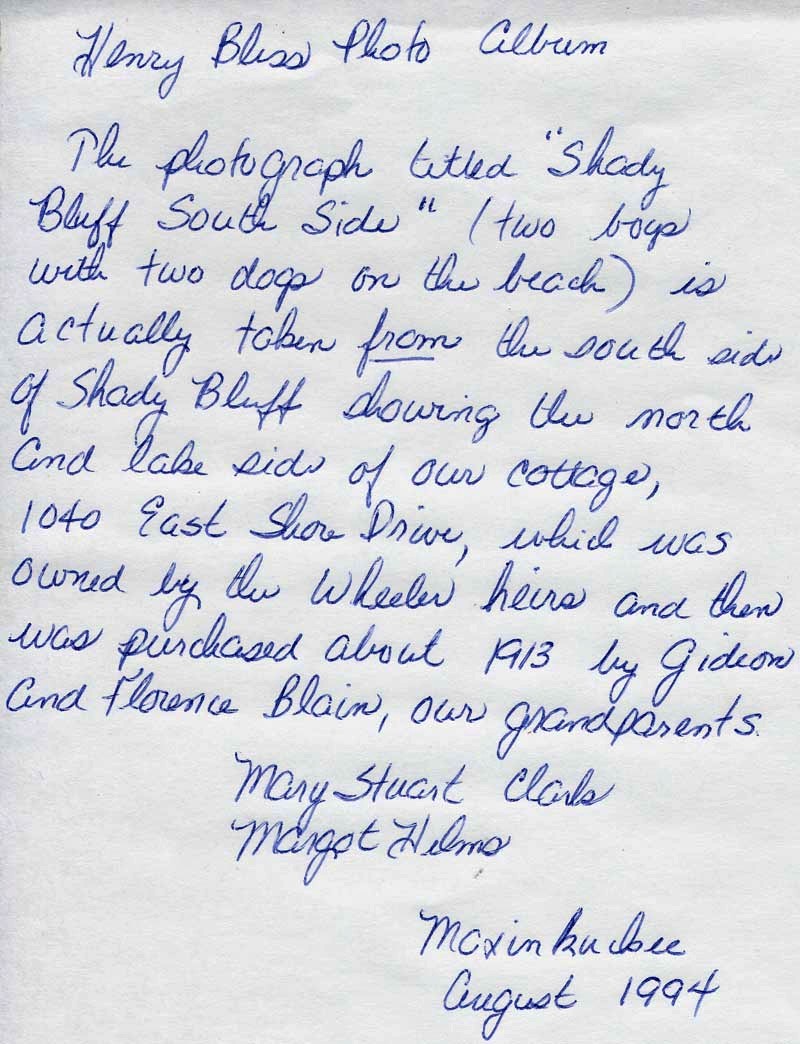 Henry Bliss Photo Album
The photograph titled "Shady
Bluff South Side" (two boys
with two dogs on the beach) is
actually taken from the south side
of Shady Bluff showing the north
and lake side of our cottage,
1040 East Shore Drive, which was
owned by the Wheeler heirs and then
was purchased about 1913 by Gideon
and Florence Blain, our grandparents.
Mary Stuart Clark
Margot Helms
Maxinkuckee
August 1994